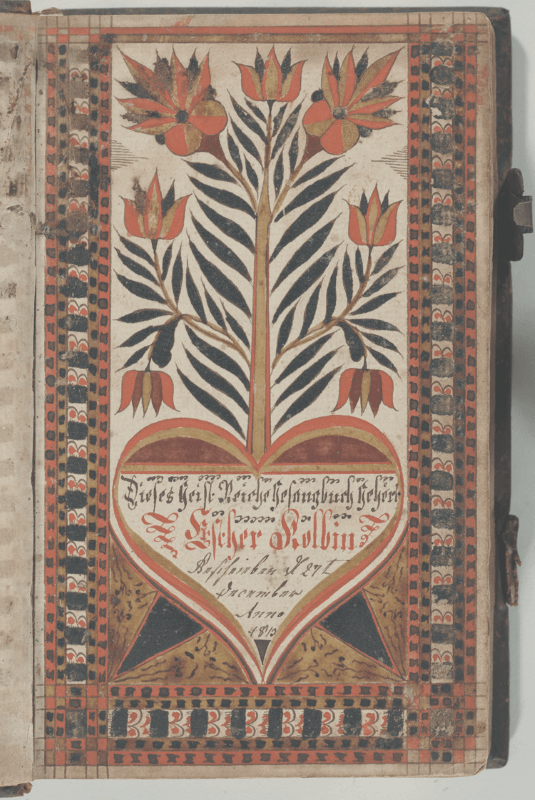 Dieses Geist Reiche Gesangbuch Gehört
Escher Kolbin
Geschrieben D 27t
December
Anno
1813